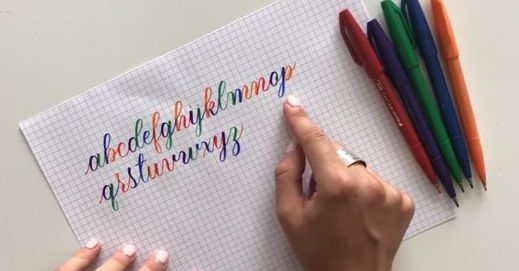 abcdefghijklmnop
qrstuvwxyz